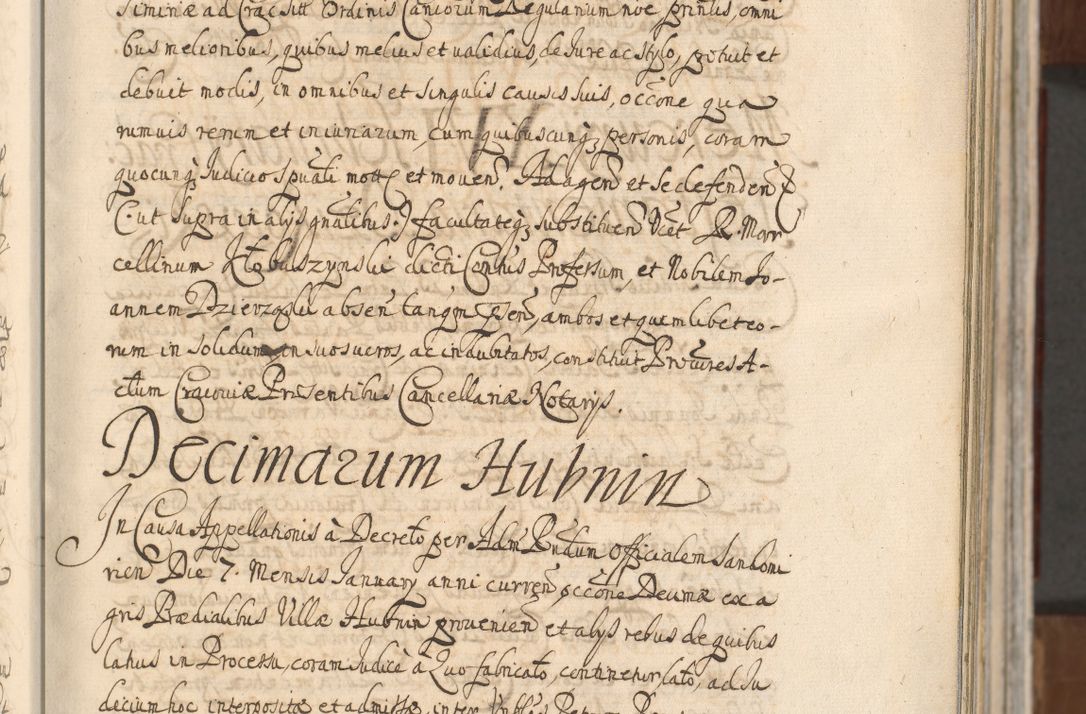 Siminiæ ad Crac Sitt Ordinis Canicorum Regularium noe prīntis, omni
bus melioribus, quibus melius et validius, de Jure ac stylo, potuit et
debuit modis, in omnibus et singulis causis suis, occōne qua
rumuis rerum et iniuriarum, cum quibuscunq; personis, coram
quocunq; Judicio spuāli mottͤ et mouenͤ. Ad agenͤ et se defendenͤ
(: ut supra in alys gnālibus :) facultateq; substituenͤ Vcet R. Mar
cellinum Kłobuszynski dicti Contus Professum, et Nobilem Jo-
annem Dzierzgski absenͤ tanqm psenͤ, ambos et quemlibet eo-
rum in solidum in suos ueros, ac indubitatos, constituit Procures A-
ctum Cracouiæ Præsentibus Cancellariæ Notarys.
Decimarum Hubnin
In Causa Appellationis à Decreto per Adm Rndum Officialem Sandomi
rienͤ Die 7. Mensis January anni currenͤ, occōne Decimæ ex a
gris Prædialibus Villæ Hubnin prouenienͤ et alys rebus de quibus
latius in Processu, coram Judice à Quo fabricato, continetur, lato, ad Ju
dicium hoc interpositæ et admissæ, inter